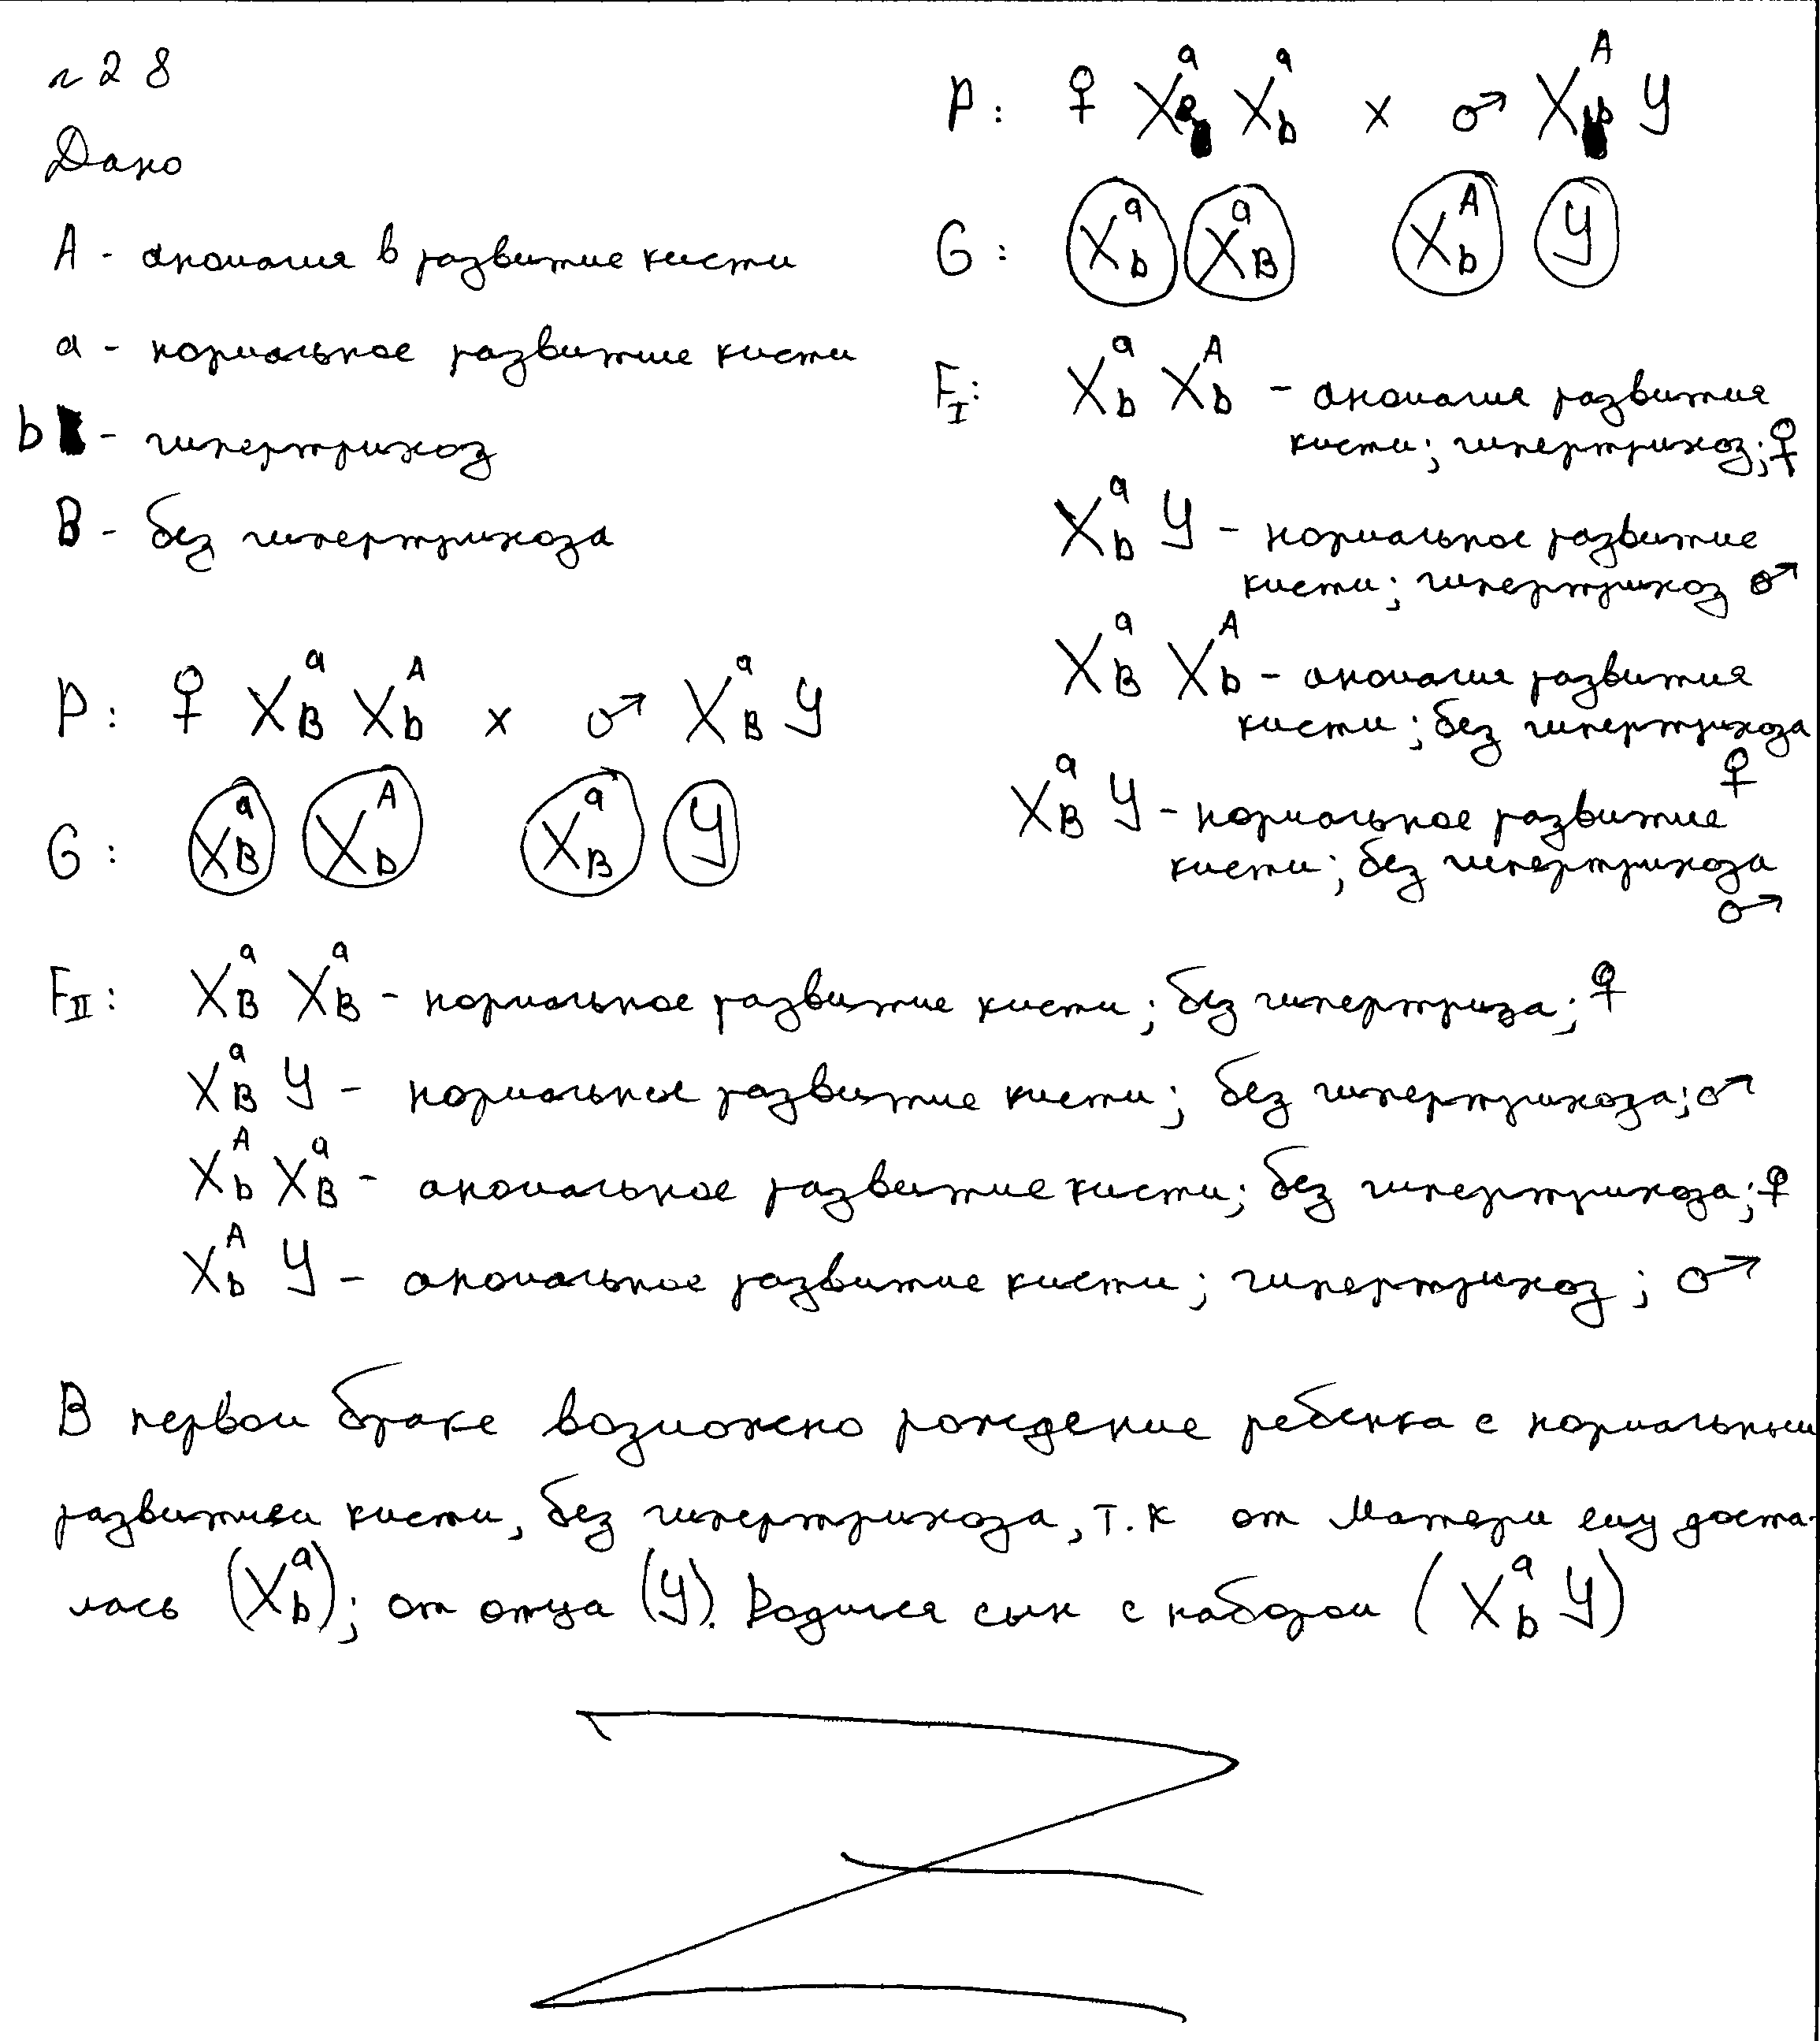 № 28
Дано
A - аномалия в развитие кисти
a - нормальное развитие кисти
b - гипертрихоз
B - без гипертрихоза
P: ♀ XᵃB Xᴬb × ♂ XᵃB У
G: XᵃB Xᴬb XᵃB У
P: ♀ XᵃB Xᵃb × ♂ Xᴬb У
G: Xᵃb XᵃB Xᴬb У
F I: Xᵃb Xᴬb - аномалия развития
кисти; гипертрихоз; ♀
Xᵃb У - нормальное развитие
кисти; гипертрихоз ♂
XᵃB Xᴬb - аномалия развития
кисти; без гипертрихоза
♀
XᵃB У - нормальное развитие
кисти; без гипертрихоза
♂
F II: XᵃB XᵃB - нормальное развитие кисти; без гипертриза; ♀
XᵃB У - нормальное развитие кисти; без гипертрихоза; ♂
Xᴬb XᵃB - аномальное развитие кисти; без гипертрихоза; ♀
Xᴬb У - аномальное развитие кисти; гипертрихоз; ♂
В первом браке возможно рождение ребенка с нормальным
развитием кисти, без гипертрихоза, т.к от матери ему доста-
лась (Xᵃb); от отца (У). Родился сын с набором (Xᵃb У)